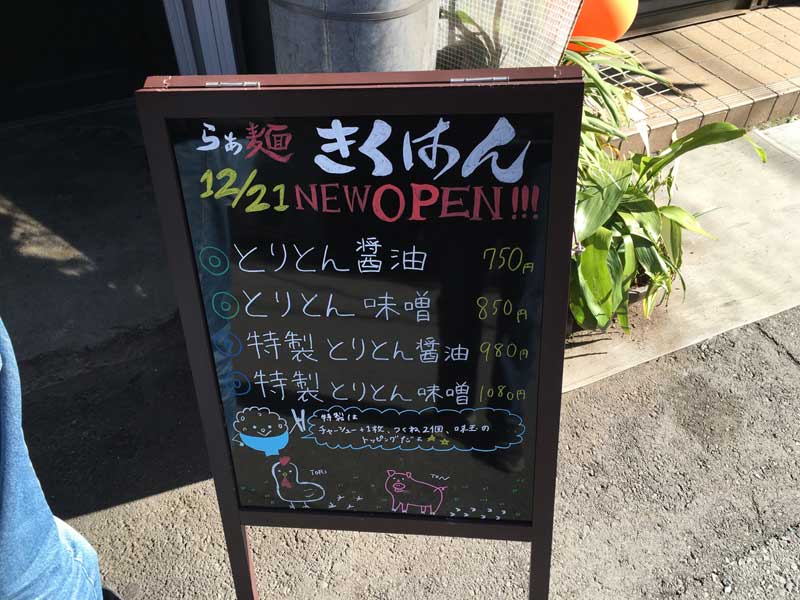 らぁ麺 きくはん
12/21 NEW OPEN!!!
◎とりとん醤油 750円
◎とりとん味噌 850円
◎特製とりとん醤油 980円
◎特製とりとん味噌 1080円
特製は
チャーシュー+1枚、つくね2個、味玉の
トッピングだよ☆☆
TORI
TON